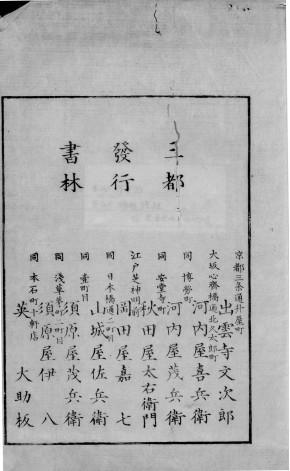 三都
發行
書林
京都三条通升屋町
出雲寺文次郎
大坂心斎橋通北久太郎町
河内屋喜兵衛
同 博勞町
河内屋茂兵衛
同 安堂寺町
秋田屋太右衛門
江戸芝神明前
岡田屋嘉七
同 日本橋通二町目
山城屋佐兵衛
同 壹町目
須原屋茂兵衛
同 浅草茅町二町目
須原屋伊八
同 本石町十軒店
英大助板